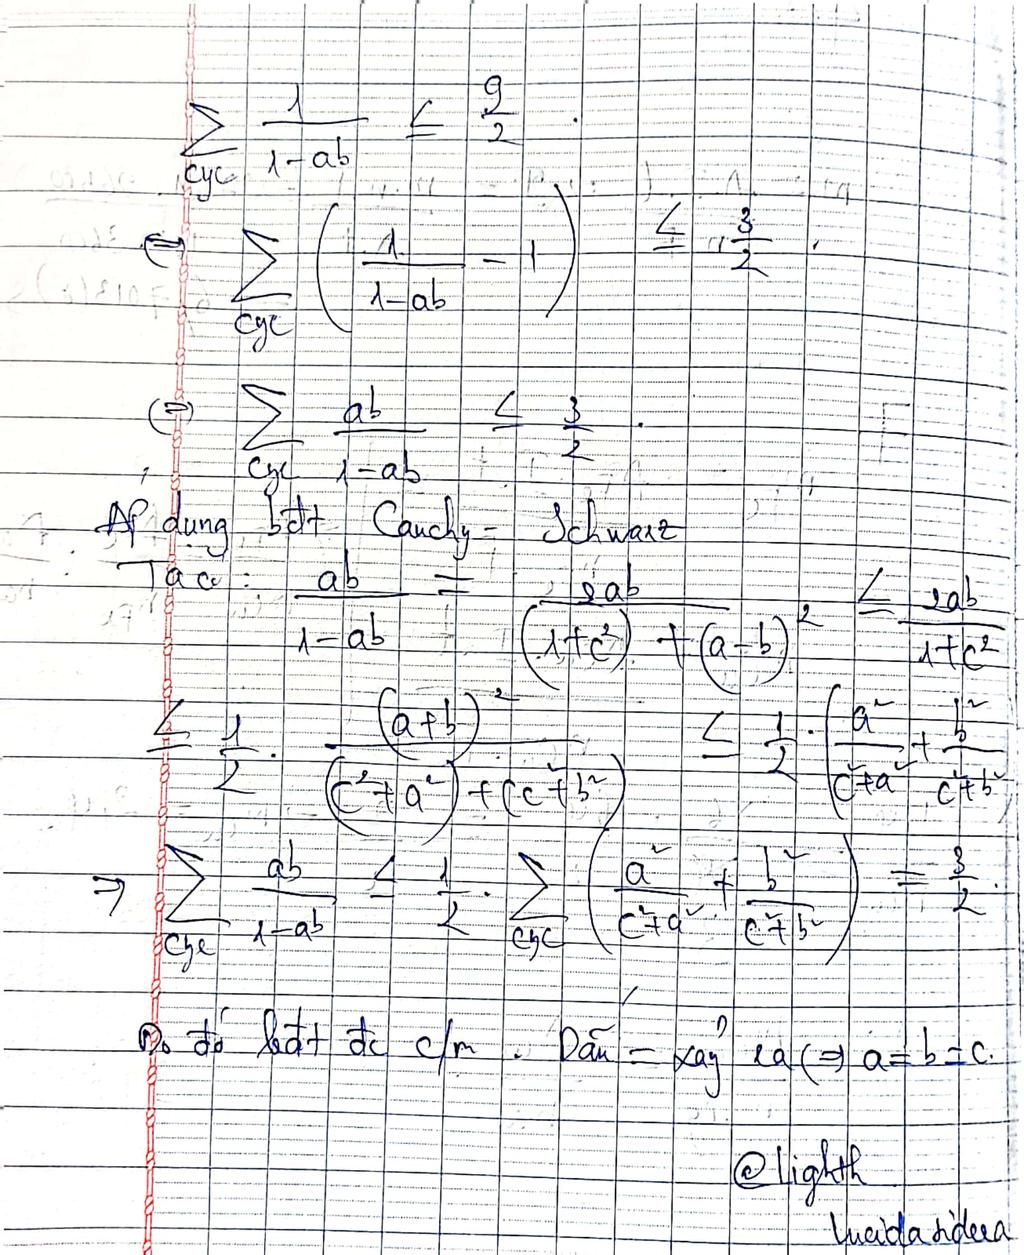 ∑cyc 1/(1-ab) ≤ 9/2 .
⇔ ∑cyc (1/(1-ab) - 1) ≤ 3/2 .
⇔ ∑cyc ab/(1-ab) ≤ 3/2 .
Áp dụng bđt Cauchy - Schwarz
Ta có : ab/(1-ab) = 2ab/((1+c²) + (a-b)²) ≤ 2ab/(1+c²)
≤ 1/2 . (a+b)²/((c²+a²)+(c²+b²)) ≤ 1/2 . (a²/(c²+a²) + b²/(c²+b²)
⇒ ∑cyc ab/(1-ab) ≤ 1/2 . ∑cyc (a²/(c²+a²) + b²/(c²+b²)) = 3/2 .
Do đó bất đc c/m . Dấu = xảy ra ⇔ a=b=c.
@lighth